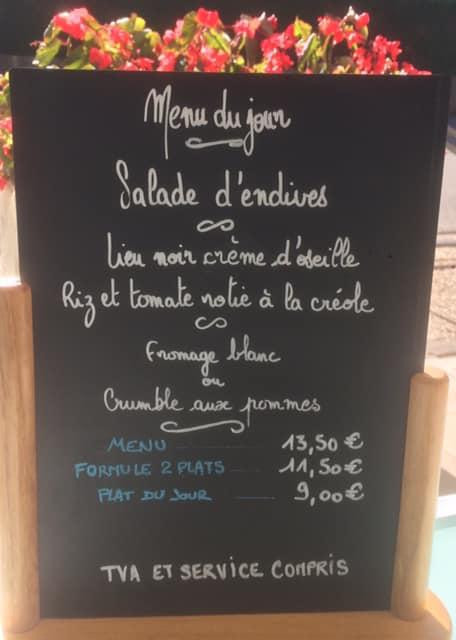 Menu du jour
Salade d'endives
Lieu noir crème d'oseille
Riz et tomate rotie à la créole
Fromage blanc
ou
Crumble aux pommes
MENU 13,50 €
FORMULE 2 PLATS 11,50€
PLAT DU JOUR 9,00€
TVA ET SERVICE COMPRIS